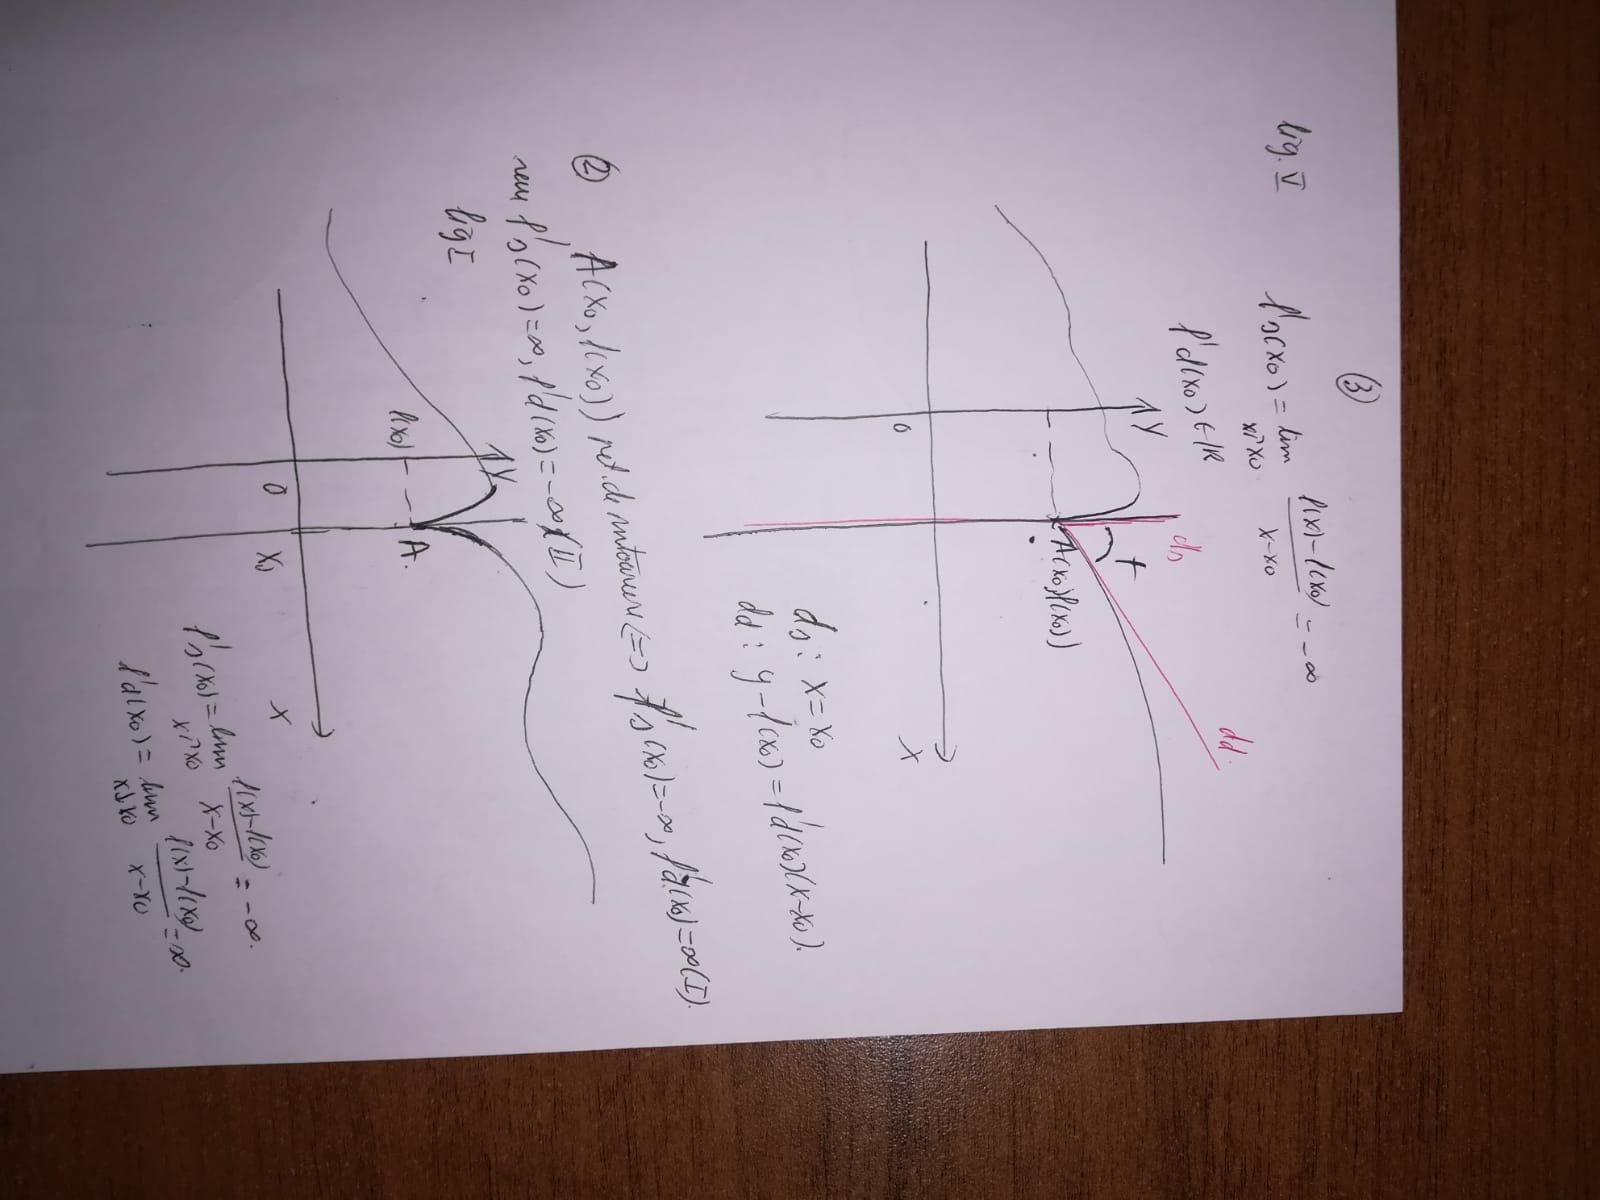 ③
fig. V f's(x0) = lim x↗x0 f(x)-f(x0) / x-x0 = -∞
f'd(x0) ∈ IR
dd.
ds
Y
A(x0, f(x0))
0
X
ds : x = x0
dd : y - f(x0) = f'd(x0)(x-x0).
② A(x0, f(x0)) pct. de intoarcere <=> f's(x0) = -∞, f'd(x0) = ∞ (I).
sau f's(x0) = ∞, f'd(x0) = -∞ (II)
fig I
Y
f(x0)
A.
0
X0
X
f's(x0) = lim x↗x0 f(x)-f(x0) / x-x0 = -∞.
f'd(x0) = lim x↓x0 f(x)-f(x0) / x-x0 = ∞.